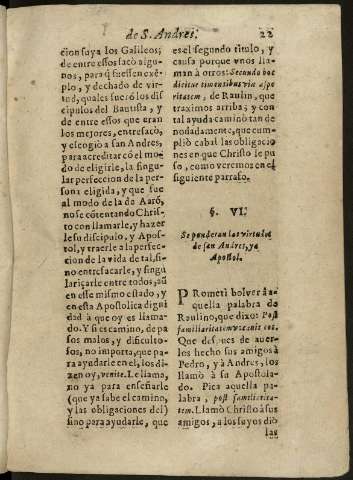 de S. Andres. 22
cion suya los Galileos;
de entre essos sacò algu-
nos, para q̃ fuessen exẽ-
plo, y dechado de vir-
tud, quales fuerõ los dis-
cipulos del Bautista, y
de entre essos que eran
los mejores, entresacò,
y escogio a san Andres,
para acreditar cõ el mo-
do de eligirle, la singu-
lar perfeccion de la per-
sona eligida, y que fue
al modo de la de Aarõ,
no se cõtentando Chris-
to con llamarle, y hazer
le su discipulo, y Apos-
tol, y traerle a la perfec-
cion de la vida de tal, si-
no entresacarle, y singu
lariçarle entre todos, aũ
en esse mismo estado, y
en esta Apostolica digni
dad à que oy es llama-
do. Y si es camino, de pa
sos malos, y dificulto-
sos, no importa, que pa-
ra ayudarle en el, los di-
zen oy, venite. Le llama,
no ya para enseñarle
(que ya sabe el camino,
y las obligaciones del)
sino para ayudarle, que
es el segundo titulo, y
causa porque vnos lla-
man à otros: Secundo hoc
dicitur timentibus viæ aspe
ritatem, de Raulin, que
traximos arriba; y con
tal ayuda caminò tan de
nodadamente, que cum-
pliò cabal las obligacio
nes en que Christo le pu
so, como veremos en el
siguiente parrafo.
§. VI.
Se ponderan las virtudes
de san Andres, ya
Apostol.
PRometi bolver à a-
quella palabra de
Raulino, que dixo: Post
familiaritatem vocatis eos.
Que despues de aver-
los hecho sus amigos à
Pedro, y à Andres, los
llamò à su Apostola-
do. Pica aquella pa-
labra, post familiarita-
tem. Llamò Christo à sus
amigos, a los suyos diò
las